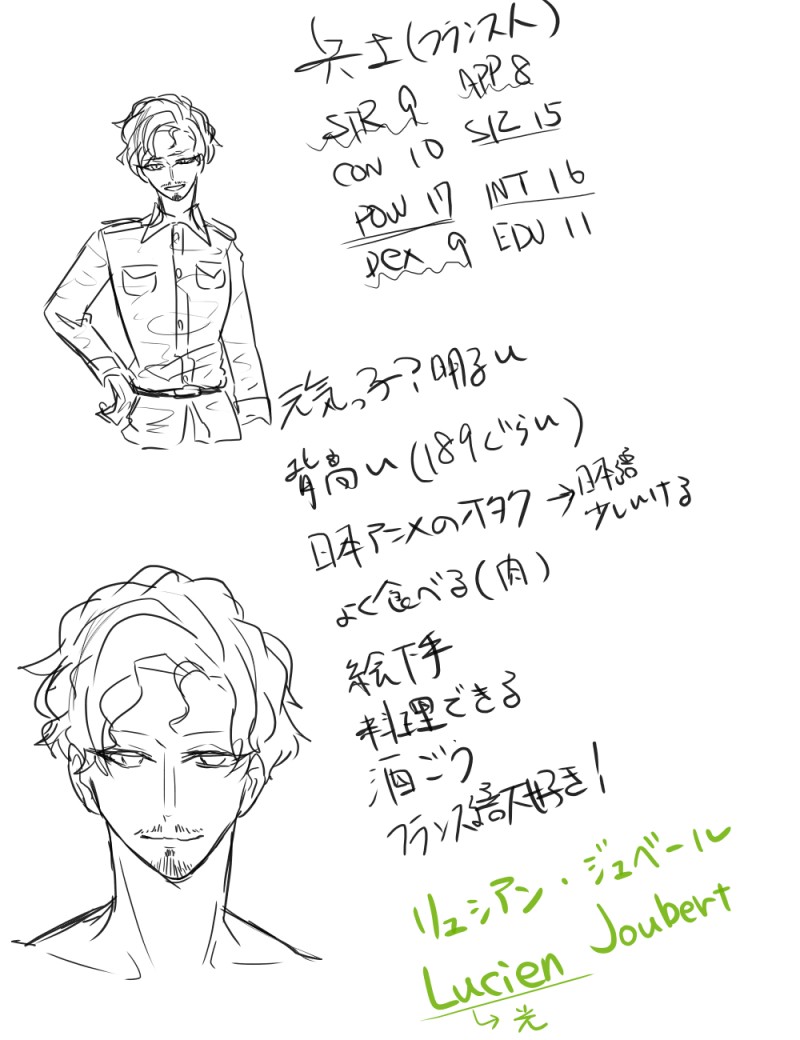 兵士(フランス人)
STR 9 APP 8
CON 10 SIZ 15
POW 17 INT 16
DEX 9 EDU 11
元気っ子?明るい
背高い(189ぐらい)
日本アニメのオタク→日本語
少しいける
よく食べる(肉)
絵下手
料理できる
酒ごう
フランス語大好き!
リュシアン・ジュベール
Lucien Joubert
↳光